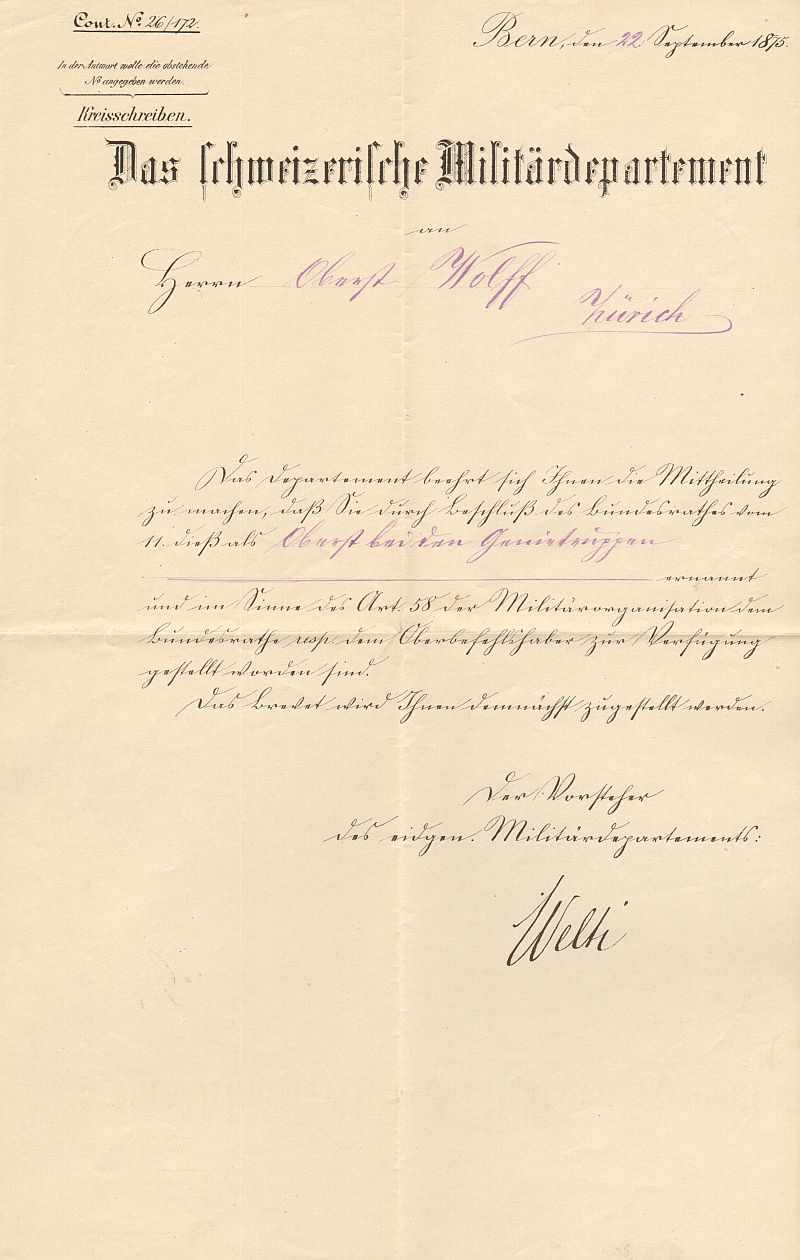 Cont. No. 26/172.
Bern, den 22 September 1875.
In der Antwort wolle die obstehende
No angegeben werden.
Kreisschreiben.
Das schweizerische Militärdepartement
an
Herrn Oberst Wolff
Zürich
Das Departement beehrt sich Ihnen die Mittheilung
zu machen, daß Sie durch Beschluß des Bundesrathes vom
11. dieß als Oberst bei den Genietruppen
ernannt
und im Sinne des Art. 58 der Militärorganisation dem
Bundesrathe resp. dem Oberbefehlshaber zur Verfügung
gestellt worden sind.
Das Brevet wird Ihnen demnächst zugestellt werden.
Der Vorsteher
des eidgen. Militärdepartements:
Welti